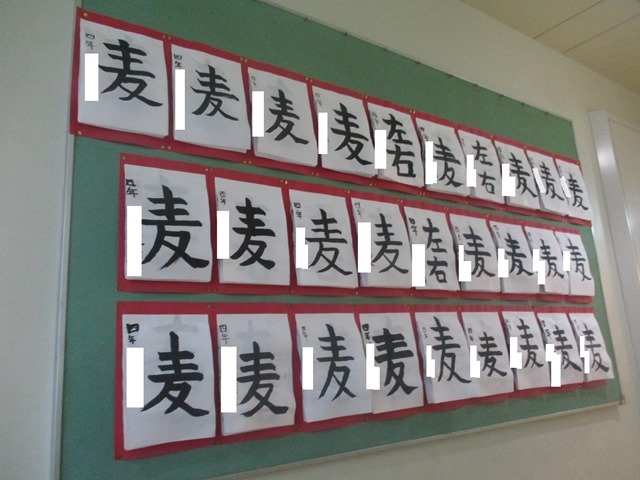 四年
麦
四年
麦
麦
麦
左右
麦
左右
麦
麦
麦
四年
麦
四年
麦
四年
麦
四年
麦
四年
左右
麦
麦
麦
麦
四年
麦
四年
麦
麦
麦
麦
麦
麦
麦
麦